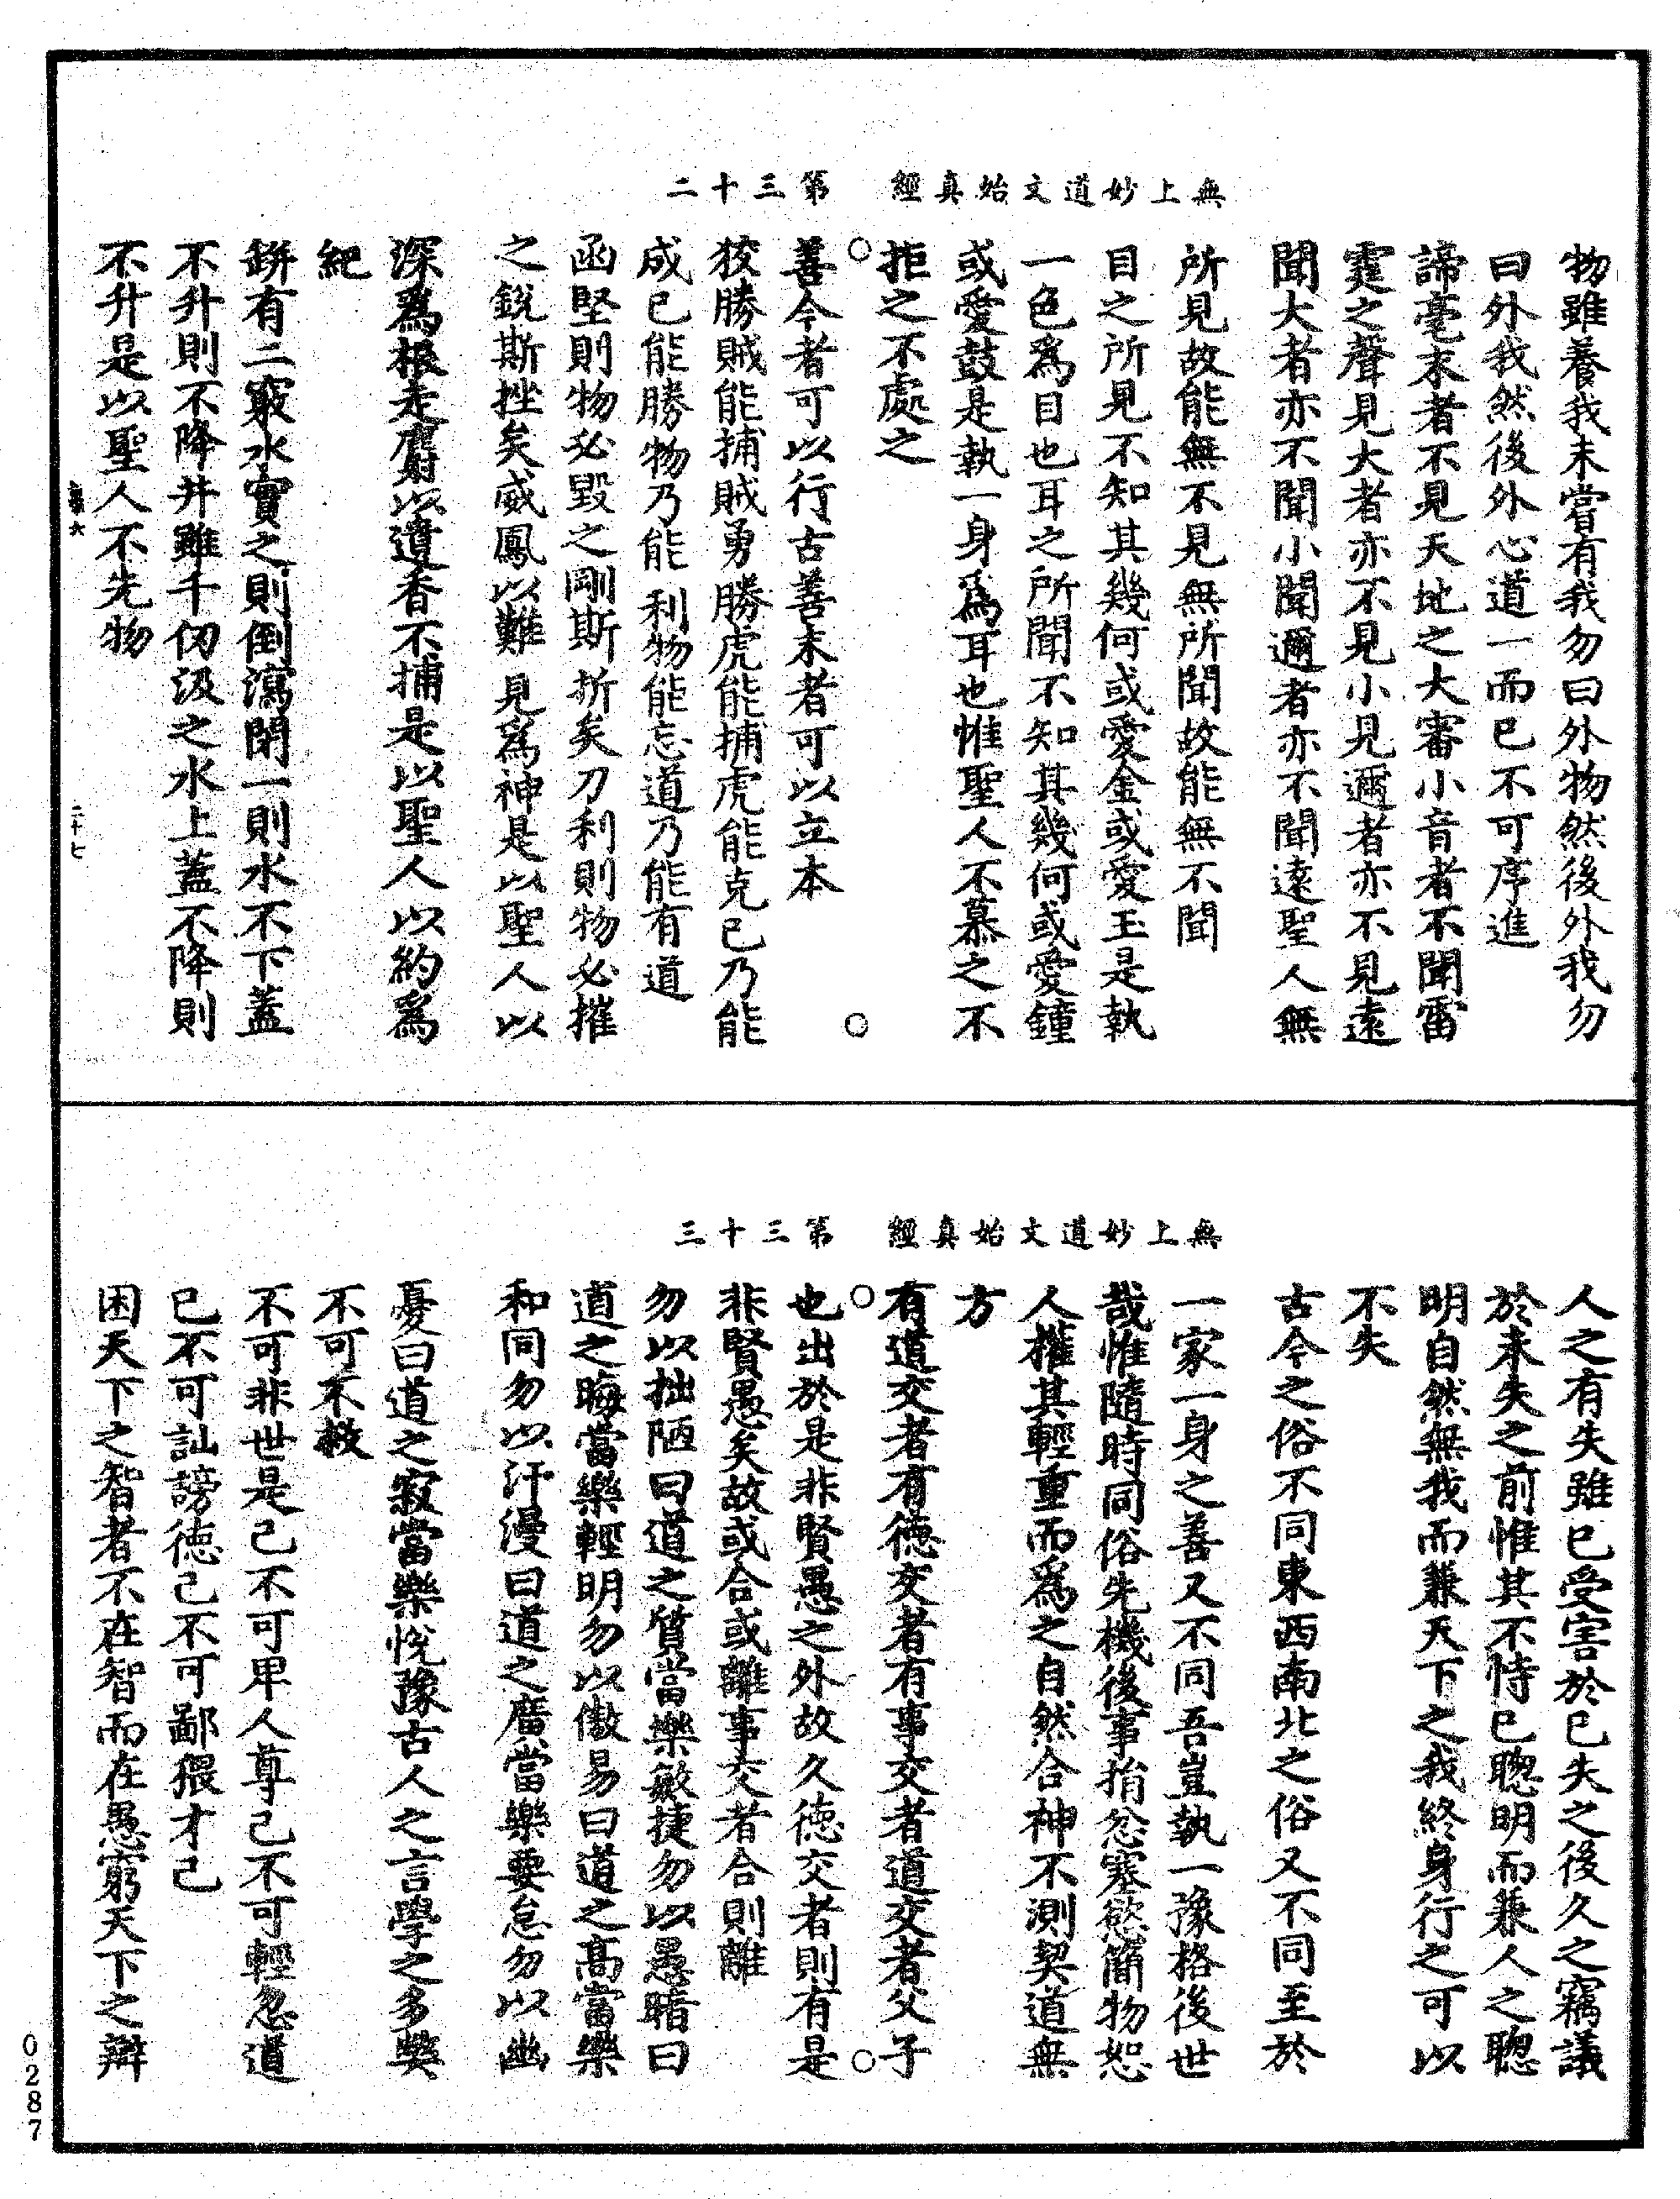 無上妙道文始真經　第三十二
物雖養我未嘗有我勿曰外物然後外我勿
曰外我然後外心道一而已不可序進
諦毫末者不見天地之大審小音者不聞雷
霆之聲見大者亦不見小見邇者亦不見遠
聞大者亦不聞小聞邇者亦不聞遠聖人無
所見故能無不見無所聞故能無不聞
目之所見不知其幾何或愛金或愛玉是執
一色爲目也耳之所聞不知其幾何或愛鐘
或愛鼓是執一身爲耳也惟聖人不慕之不
拒之不處之
善今者可以行古善末者可以立本
狡勝賊能捕賊勇勝虎能捕虎能克已乃能
成已能勝物乃能利物能忘道乃能有道
函堅則物必毀之剛斯折矣刀利則物必摧
之銳斯挫矣威鳳以難見爲神是以聖人以
深爲根走麝以遺香不捕是以聖人以約爲
紀
缾有二竅水實之則倒瀉閉一則水不下蓋
不升則不降井雖千仞汲之水上蓋不降則
不升是以聖人不先物
二十七
無上妙道文始真經　第三十三
人之有失雖已受害於已失之後久之竊議
於未失之前惟其不恃已聰明而兼人之聰
明自然無我而兼天下之我終身行之可以
不失
古今之俗不同東西南北之俗又不同至於
一家一身之善又不同吾豈執一豫格後世
哉惟隨時同俗先機後事捐忿塞慾簡物恕
人權其輕重而爲之自然合神不測契道無
方
有道交者有德交者有事交者道交者父子
也出於是非賢愚之外故久德交者則有是
非賢愚矣故或合或離事交者合則離
勿以拙陋曰道之質當樂敏捷勿以愚暗曰
道之晦當樂輕明勿以傲易曰道之高當樂
和同勿以汗漫曰道之廣當樂要怠勿以幽
憂曰道之寂當樂悅豫古人之言學之多獘
不可不救
不可非世是己不可卑人尊己不可輕忽道
已不可訕謗德己不可鄙猥才己
困天下之智者不在智而在愚窮天下之辯
0287